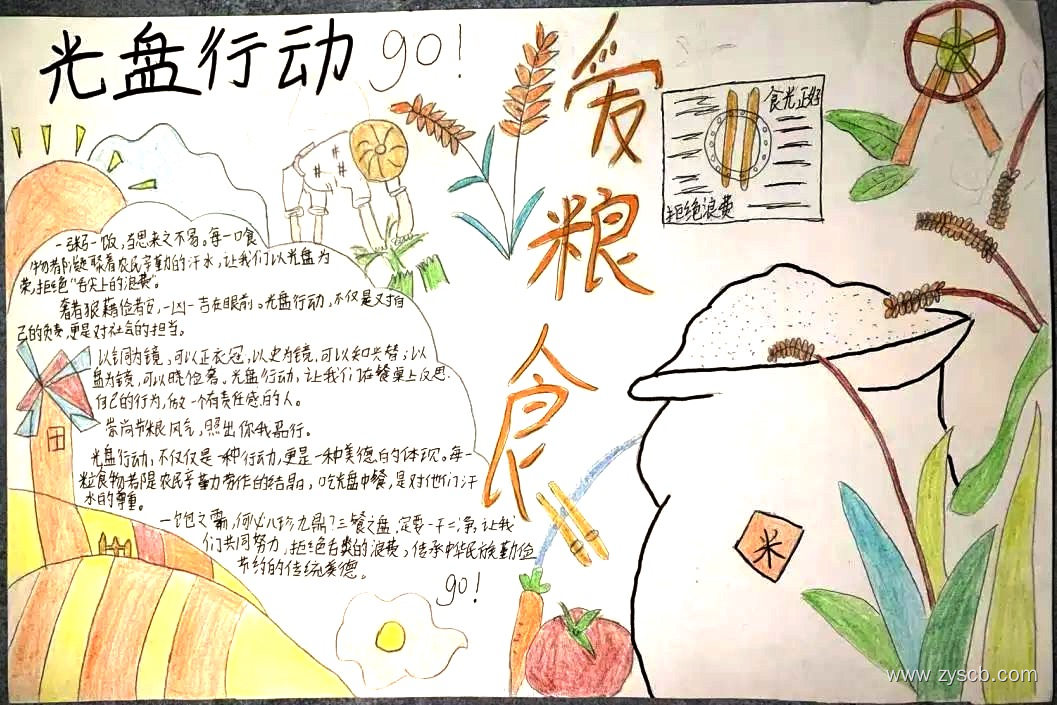 光盘行动 go!
爱粮食
食光正好
拒绝浪费
一粥一饭,当思来之不易。每一口食
物都凝聚着农民辛勤的汗水,让我们以光盘为
荣,拒绝“舌尖上的浪费”。
奢者狼藉俭者安,一凶一吉在眼前。光盘行动,不仅是对自
己的负责,更是对社会的担当。
以铜为镜,可以正衣冠,以史为镜,可以知兴替;以
盘为镜,可以晓俭奢。光盘行动,让我们在餐桌上反思
自己的行为,做一个有责任感的人。
崇尚节粮风气,照出你我品行。
光盘行动,不仅仅是一种行动,更是一种美德的体现。每一
粒食物都是农民辛勤劳作的结晶,吃光盘中餐,是对他们汗
水的尊重。
一饱之需,何必八珍九鼎?三餐之盘,定要一干二净,让我
们共同努力,拒绝舌尖的浪费,传承中华民族勤俭
节约的传统美德。
go!
米
www.zyscb.com